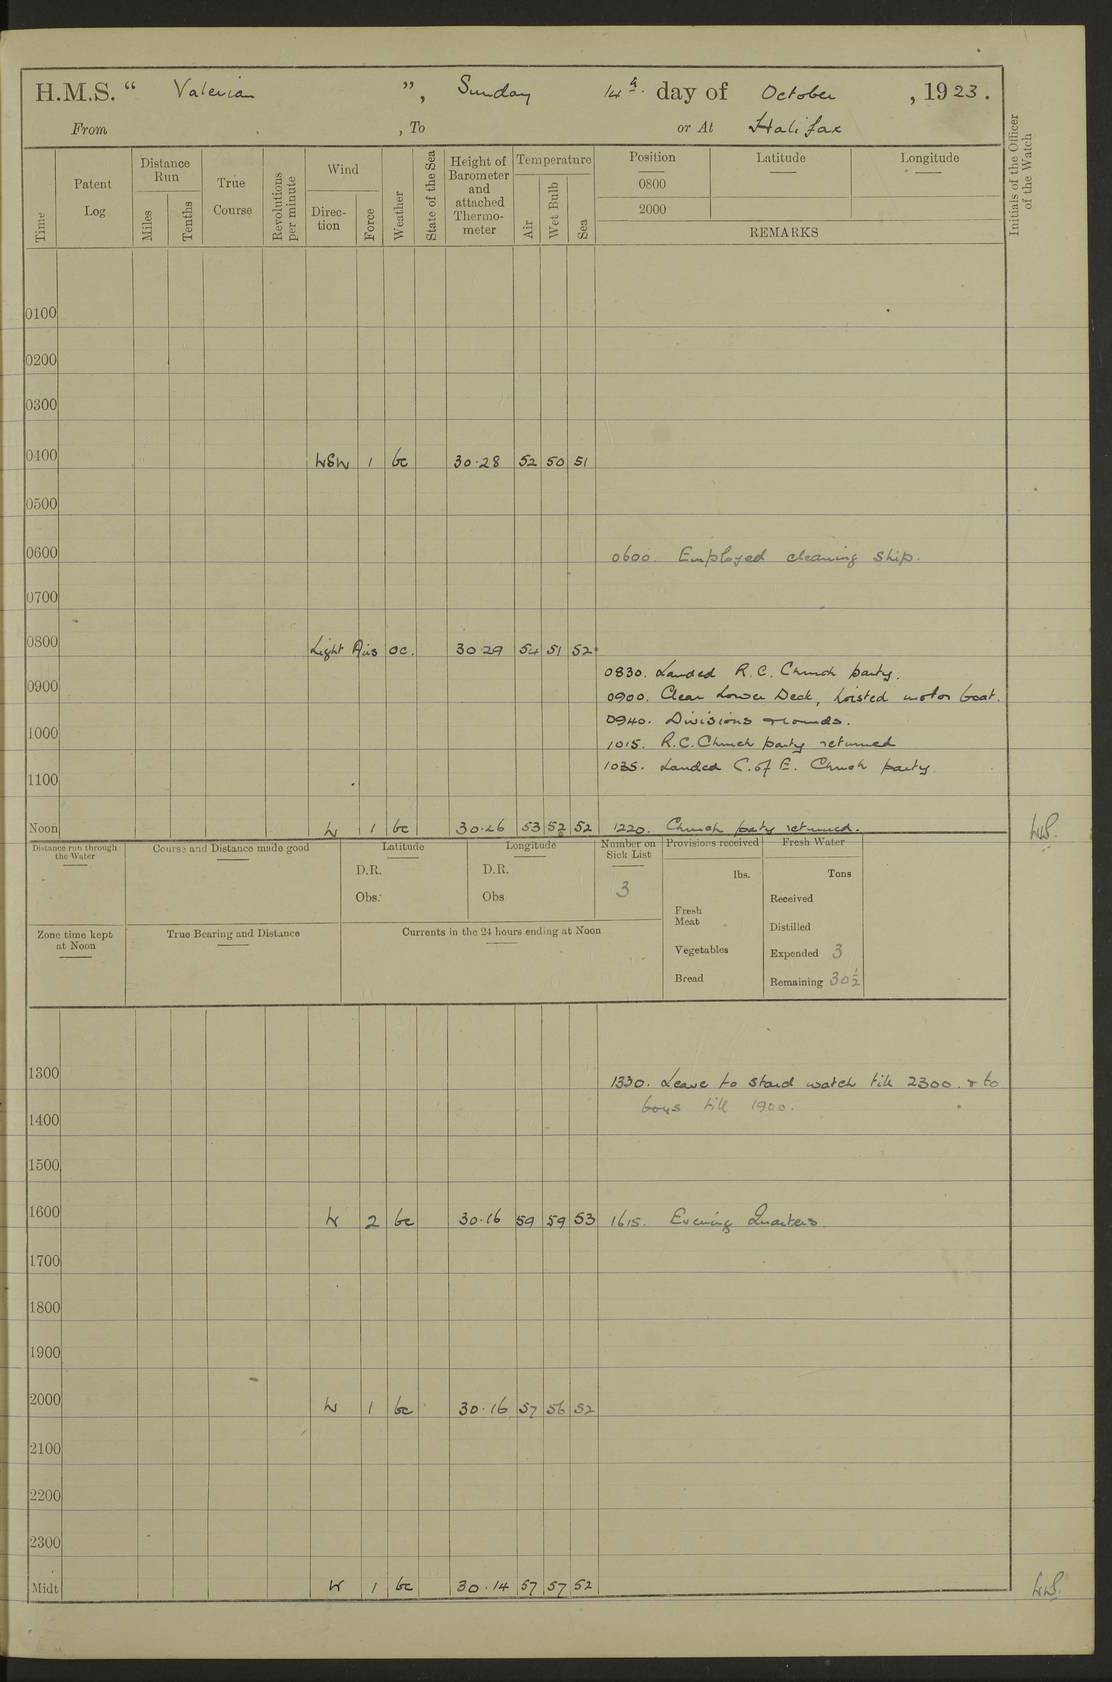 H.M.S. " Valerian ", Sunday 14th. day of October, 1923.
From , To or At Halifax
Time
Patent Log
Distance Run
Miles
Tenths
True Course
Revolutions per minute
Wind
Direc-tion
Force
Weather
State of the Sea
Height of Barometer and attached Thermo-meter
Temperature
Air
Wet Bulb
Sea
Position
0800
2000
Latitude
Longitude
REMARKS
Initials of the Officer of the Watch
0100
0200
0300
0400 WSW 1 bc 30.28 52 50 51
0500
0600 0600. Employed cleaning ship.
0700
0800 Light Airs oc. 30.29 54 51 52
0830. Landed R.C. Church party.
0900 0900. Clear Lower Deck, hoisted motor boat.
0940. Divisions rounds.
1000 1015. R.C. Church party returned
1035. Landed C. of E. Church party
1100
Noon W 1 bc 30.26 53 52 52 1220. Church party returned.
Distance run through the Water
Course and Distance made good
Latitude
D.R.
Obs:
Longitude
D.R.
Obs
Number on Sick List
3
Provisions received
lbs.
Fresh Meat
Vegetables
Bread
Fresh Water
Tons
Received
Distilled
Expended 3
Remaining 30½
Zone time kept at Noon
True Bearing and Distance
Currents in the 24 hours ending at Noon
1300 1330. Leave to stard watch till 2300. & to
boys till 1900.
1400
1500
1600 W 2 bc 30.16 59 59 53 1615. Evening Quarters
1700
1800
1900
2000 W 1 bc 30.16 57 56 52
2100
2200
2300
Midt W 1 bc 30.14 57 57 52